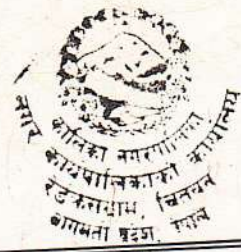 कालिका नगरपालिका
नगर कार्यपालिकाको कार्यालय
चितवन
बागमती प्रदेश, नेपाल